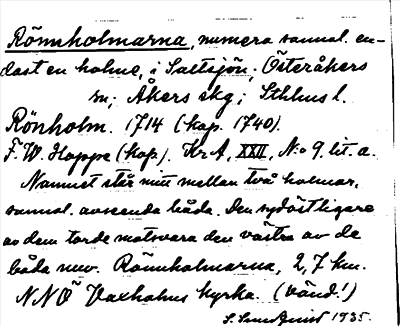 Rönnholmarna, numera sannol. en-
dast en holme, i Saltsjön; Österåkers
sn; Åkers skg; Sthlms l.
Rönholm. 1714 (kop. 1740).
F. W. Hoppe (kop). Kr. A, XXII, N:o 9 lit. a.
Namnet står mitt mellan två holmar,
sannol. avseende båda. Den sydöstligare
av dem torde motsvara den västra av de
båda nuv. Rönnholmarna, 2,7 km.
NNÖ Vaxholms kyrka. (Vänd!)
1935.